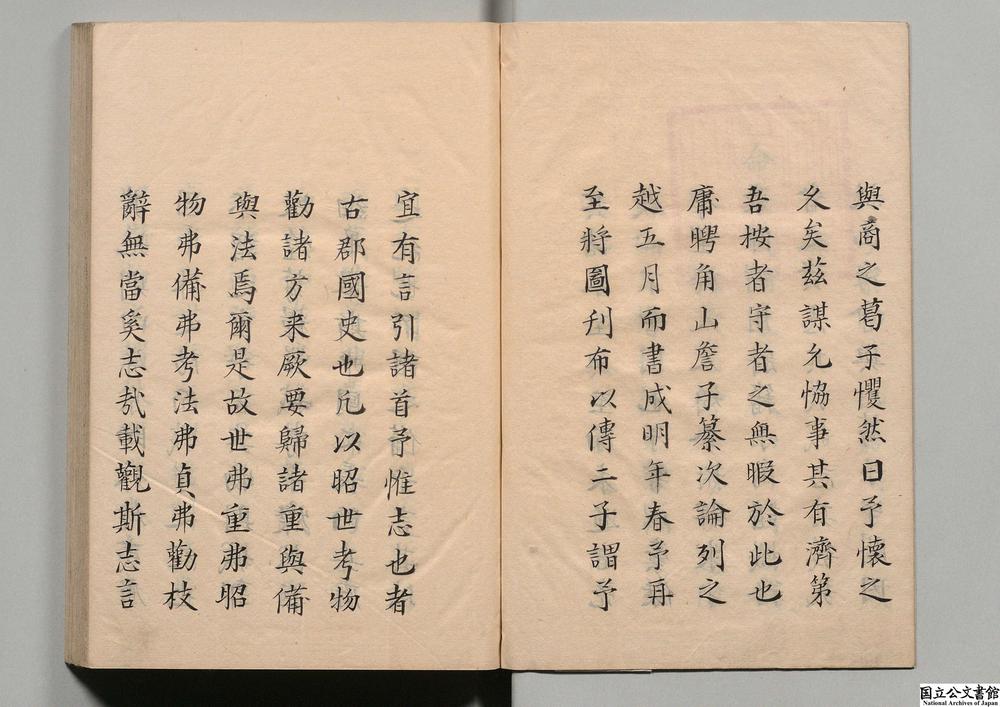 與商之葛子懼然曰予懷之
久矣茲謀允恊事其有濟第
吾桉者守者之無暇於此也
庸聘角山詹子纂次論列之
越五月而書成明年春予再
至將圖刋布以傳二子謂予
宜有言引諸首予惟志也者
古郡國史也凢以昭世考物
勸諸方来厥要歸諸重與備
與法焉爾是故世弗重弗昭
物弗備弗考法弗貞弗勸枝
辭無當奚志㢤載觀斯志言
国立公文書館
National Archives of Japan